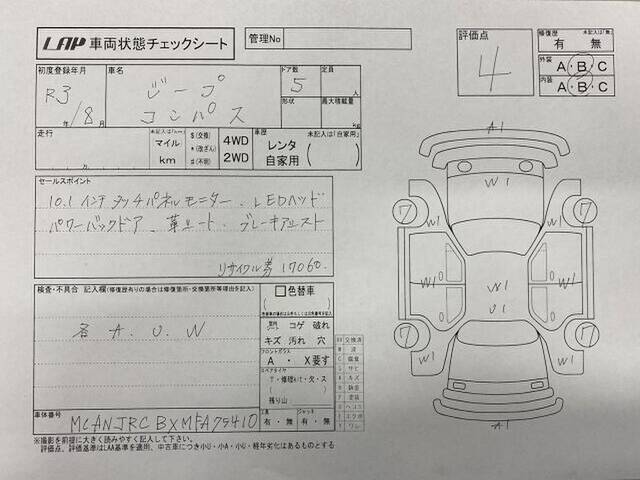 LAP 車両状態チェックシート
管理No
評価点
4
修復歴 未記入は「無」
有 無
外装 A・B・C
内装 A・B・C
初度登録年月
R3 年 / 8 月
車名
ジープ
コンパス
ドア数
5
定員
人
形状
最大積載量
kg
走行
未記入は「km」
マイル
km
$(交換)
*(改ざん)
#(不明)
4WD
2WD
車歴 未記入は「自家用」
レンタ
自家用 ( )
セールスポイント
10.1インチタッチパネルモニター、LEDヘッド
パワーバックドア、革シート、ブレーキアシスト
リサイクル券 17060.
検査・不具合 記入欄(修復歴有りの場合は修復箇所・交換箇所等理由を記入)
各 A. U. W
色替車
( )
コゲ 破れ
キズ 汚れ 穴
フロントガラス
A ・ X要す
スペアタイヤ
T・修理kit・欠・ス
残り山
工具
有・無
ジャッキ
有・無
車体番号
交換済
A1
W1
7
7
W1
W1
W1
W1
W1
W1
U1
7
7
W1
W1
A1
※撮影を前提に大きく読みやすく記入して下さい。
評価点、評価基準はLAA基準を適用、中古車につき小U・小A・小U・経年劣化はあるものとする